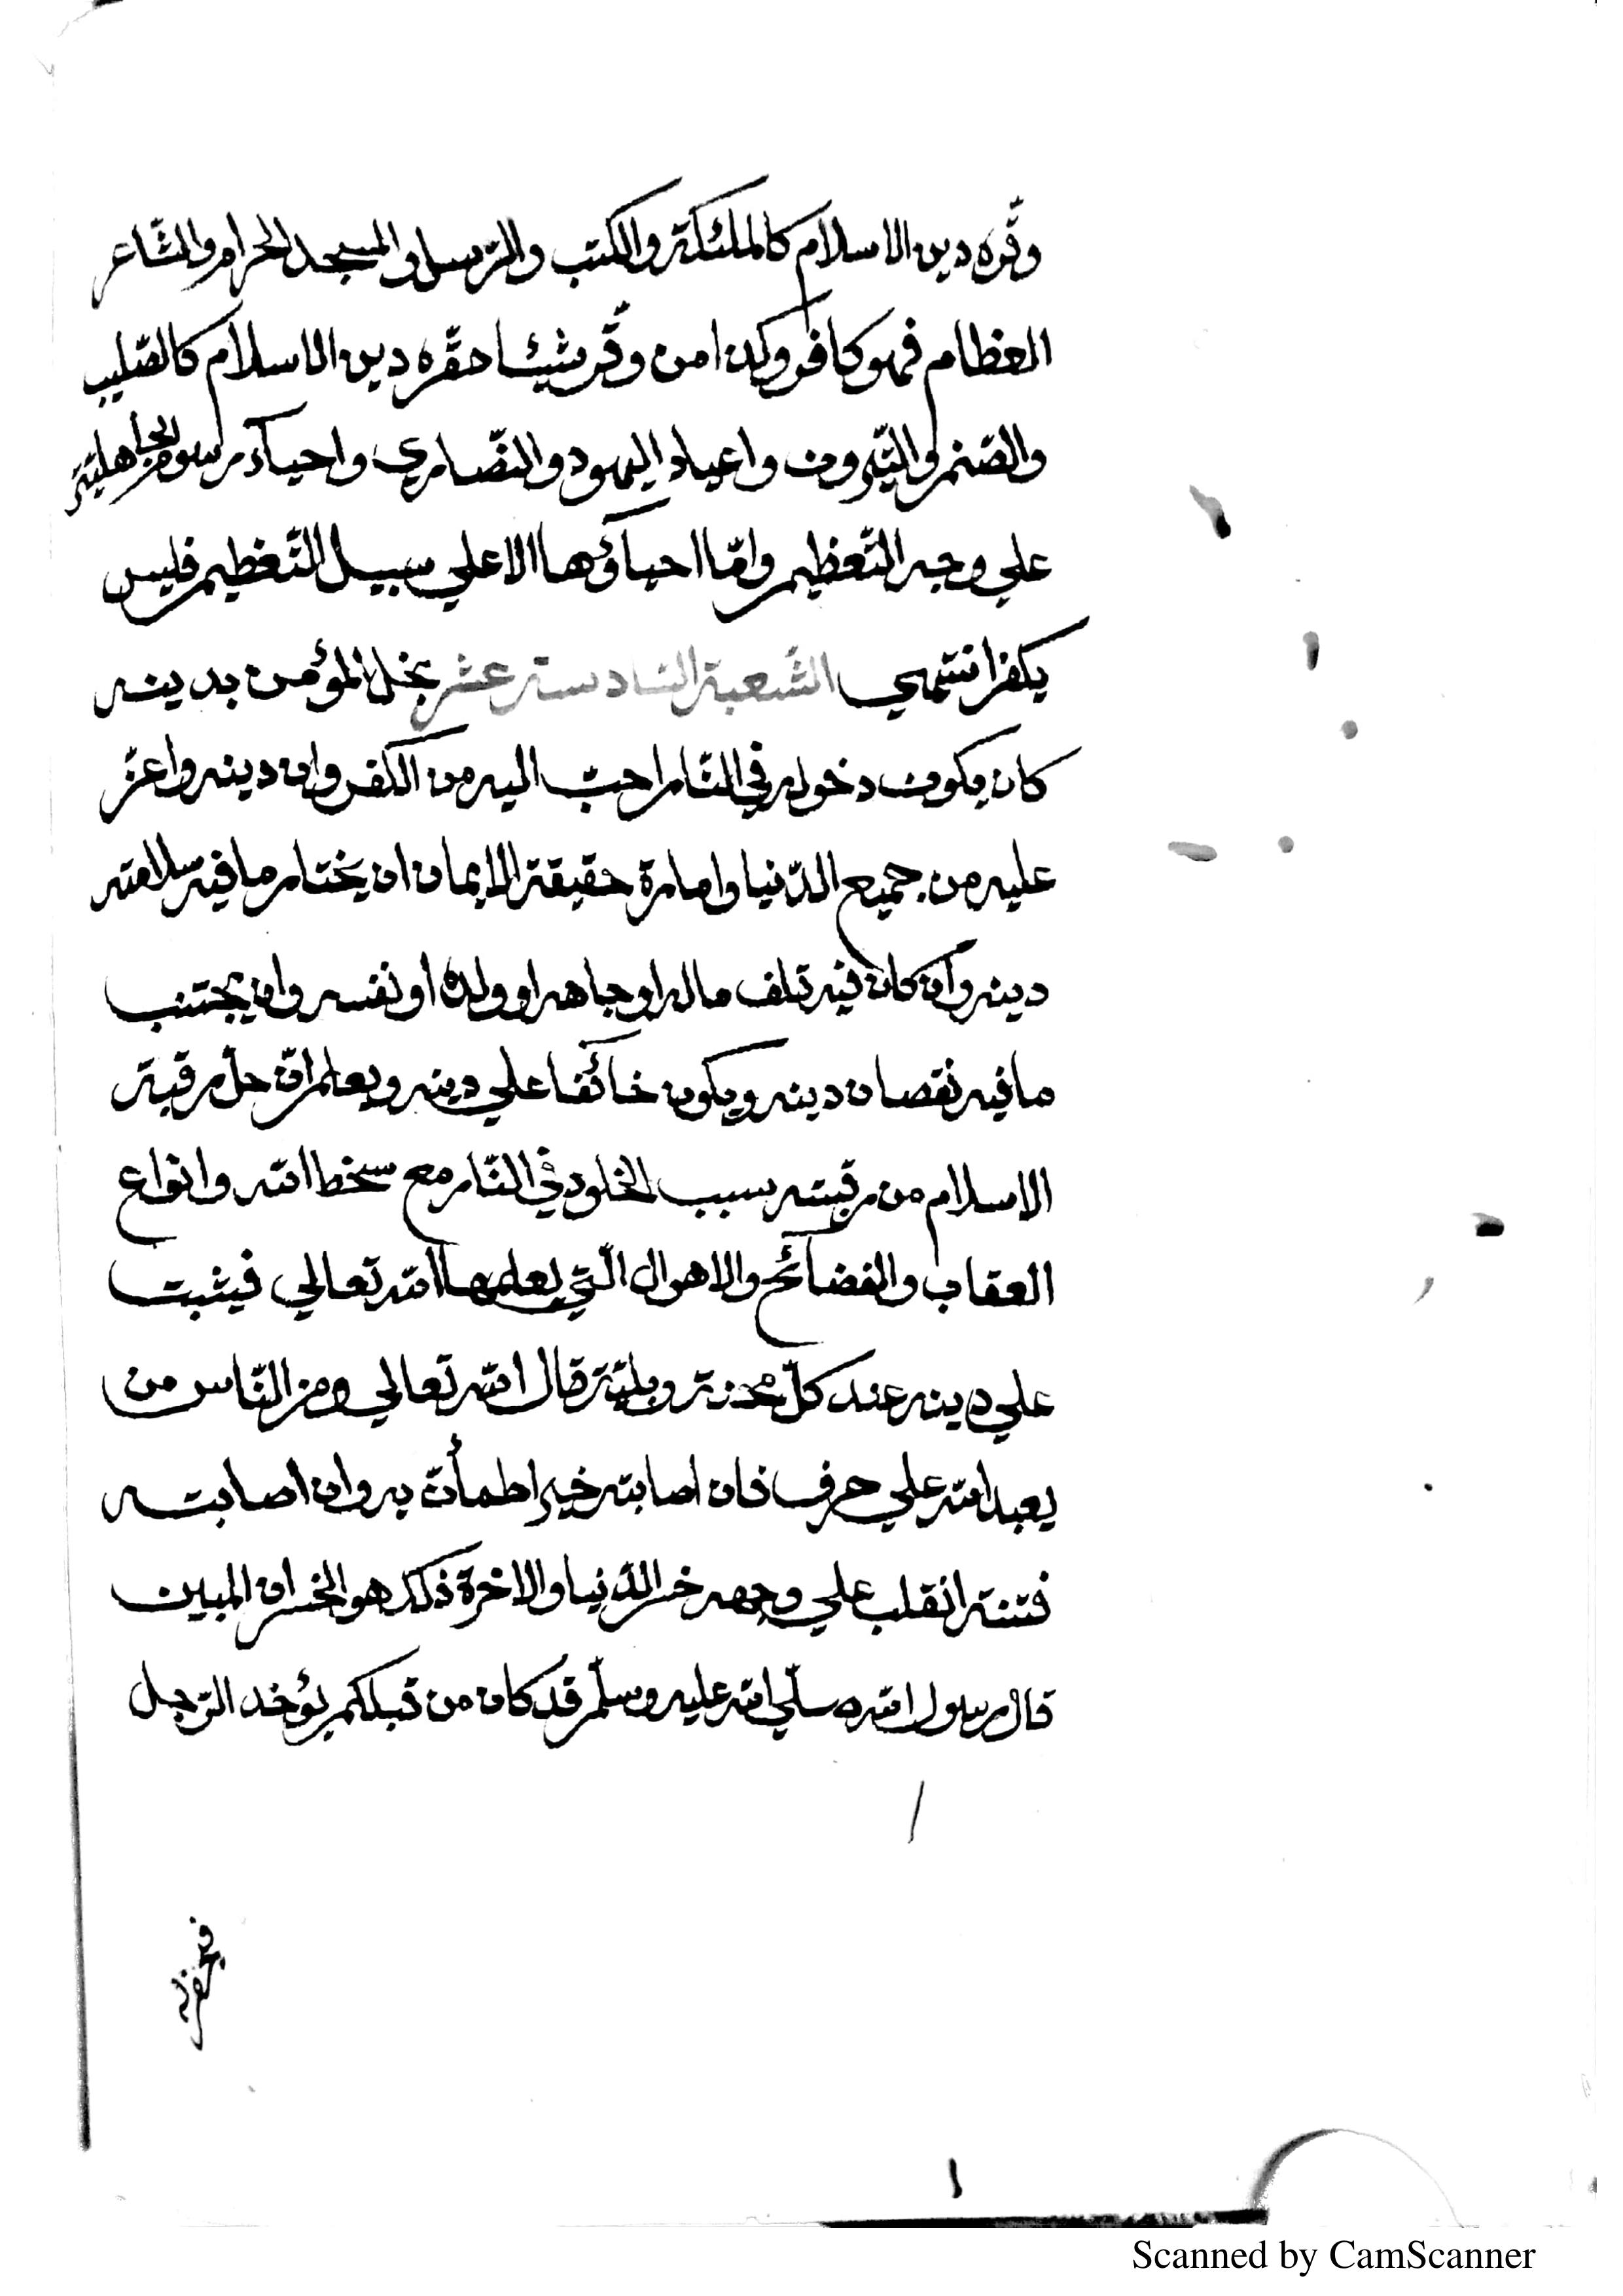 وقّره دين الاسلام كالملئكة والكتب والرّسل والمسجد الحرام والمشاعر
العظام فهو كافر وكذا من وقّر شيئا حقّره دين الاسلام كالصّليب
والصّنم والنّيرون واعياد اليهود والنّصارى واحياء رسوم الجاهليّة
علي وجه التّعظيم وامّا احياؤها لا علي سبيل التّعظيم فليس
بكفر انتهي الشّعبة السّادسة عشر بخل المؤمن بدينه
كان يكون دخوله في النّار احبّ اليه من الكفر وان دينه واعزّ
عليه من جميع الدّنيا وامارة حقيقة الايمان ان يختار ما فيه سلامته
دينه وان كان فيه تلف ماله او جاهه او ولده او نفسه وان يجتنب
ما فيه نقصان دينه ويكون خائفا علي دينه ويعلم انّ حلّ رقبة
الاسلام من رقبته بسبب الخلود في النّار مع سخط الله وانواع
العقاب والفضائح والاهوال الّتي يعلمها الله تعالي فيثبت
علي دينه عند كلّ محنة وبليّة قال الله تعالي ومن النّاس من
يعبد الله علي حرف فان اصابته خير اطمأنّ به وان اصابته
فتنة انقلب علي وجهه خسر الدّنيا والاخرة ذلك هو الخسران المبين
قال رسول الله صلّي الله عليه وسلّم قد كان من قبلكم يؤخذ الرّجل
فيحفر له
Scanned by CamScanner